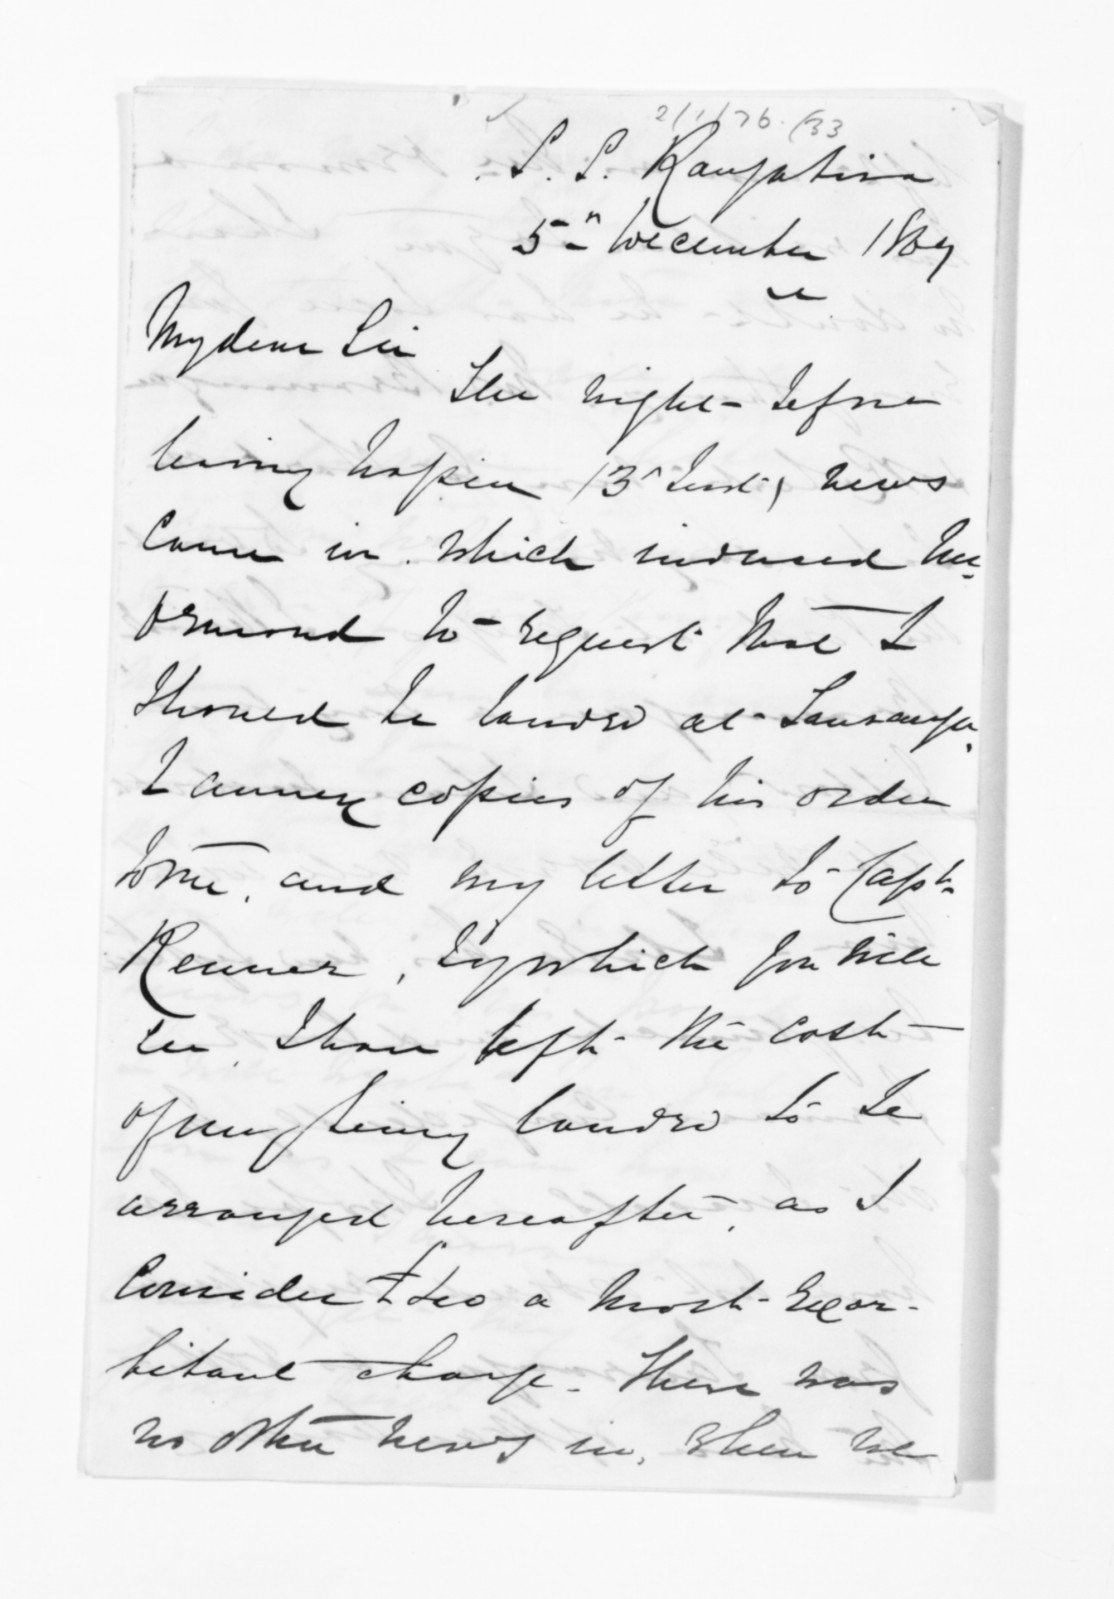 S. S. Rangatira
5th December 1867
My dear Sir
The night before
leaving Napier (3rd Inst), news
came in which induced Mr.
Ormond to request that I
should be landed at Tauranga.
I annex copies of his order
to me, and my letter to Capt.
Renner, by which you will
see I have left the cost
of my being landed to be
arranged hereafter, as I
consider a most exor-
bitant charge. There was
no other news in, when we